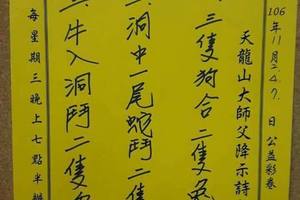 106年11月24.7.日公益彩卷
天龍山大師父降示詩
三隻狗合二隻兔
洞中一尾蛇鬥二隻
牛入洞鬥二隻
每星期三晚上七點半